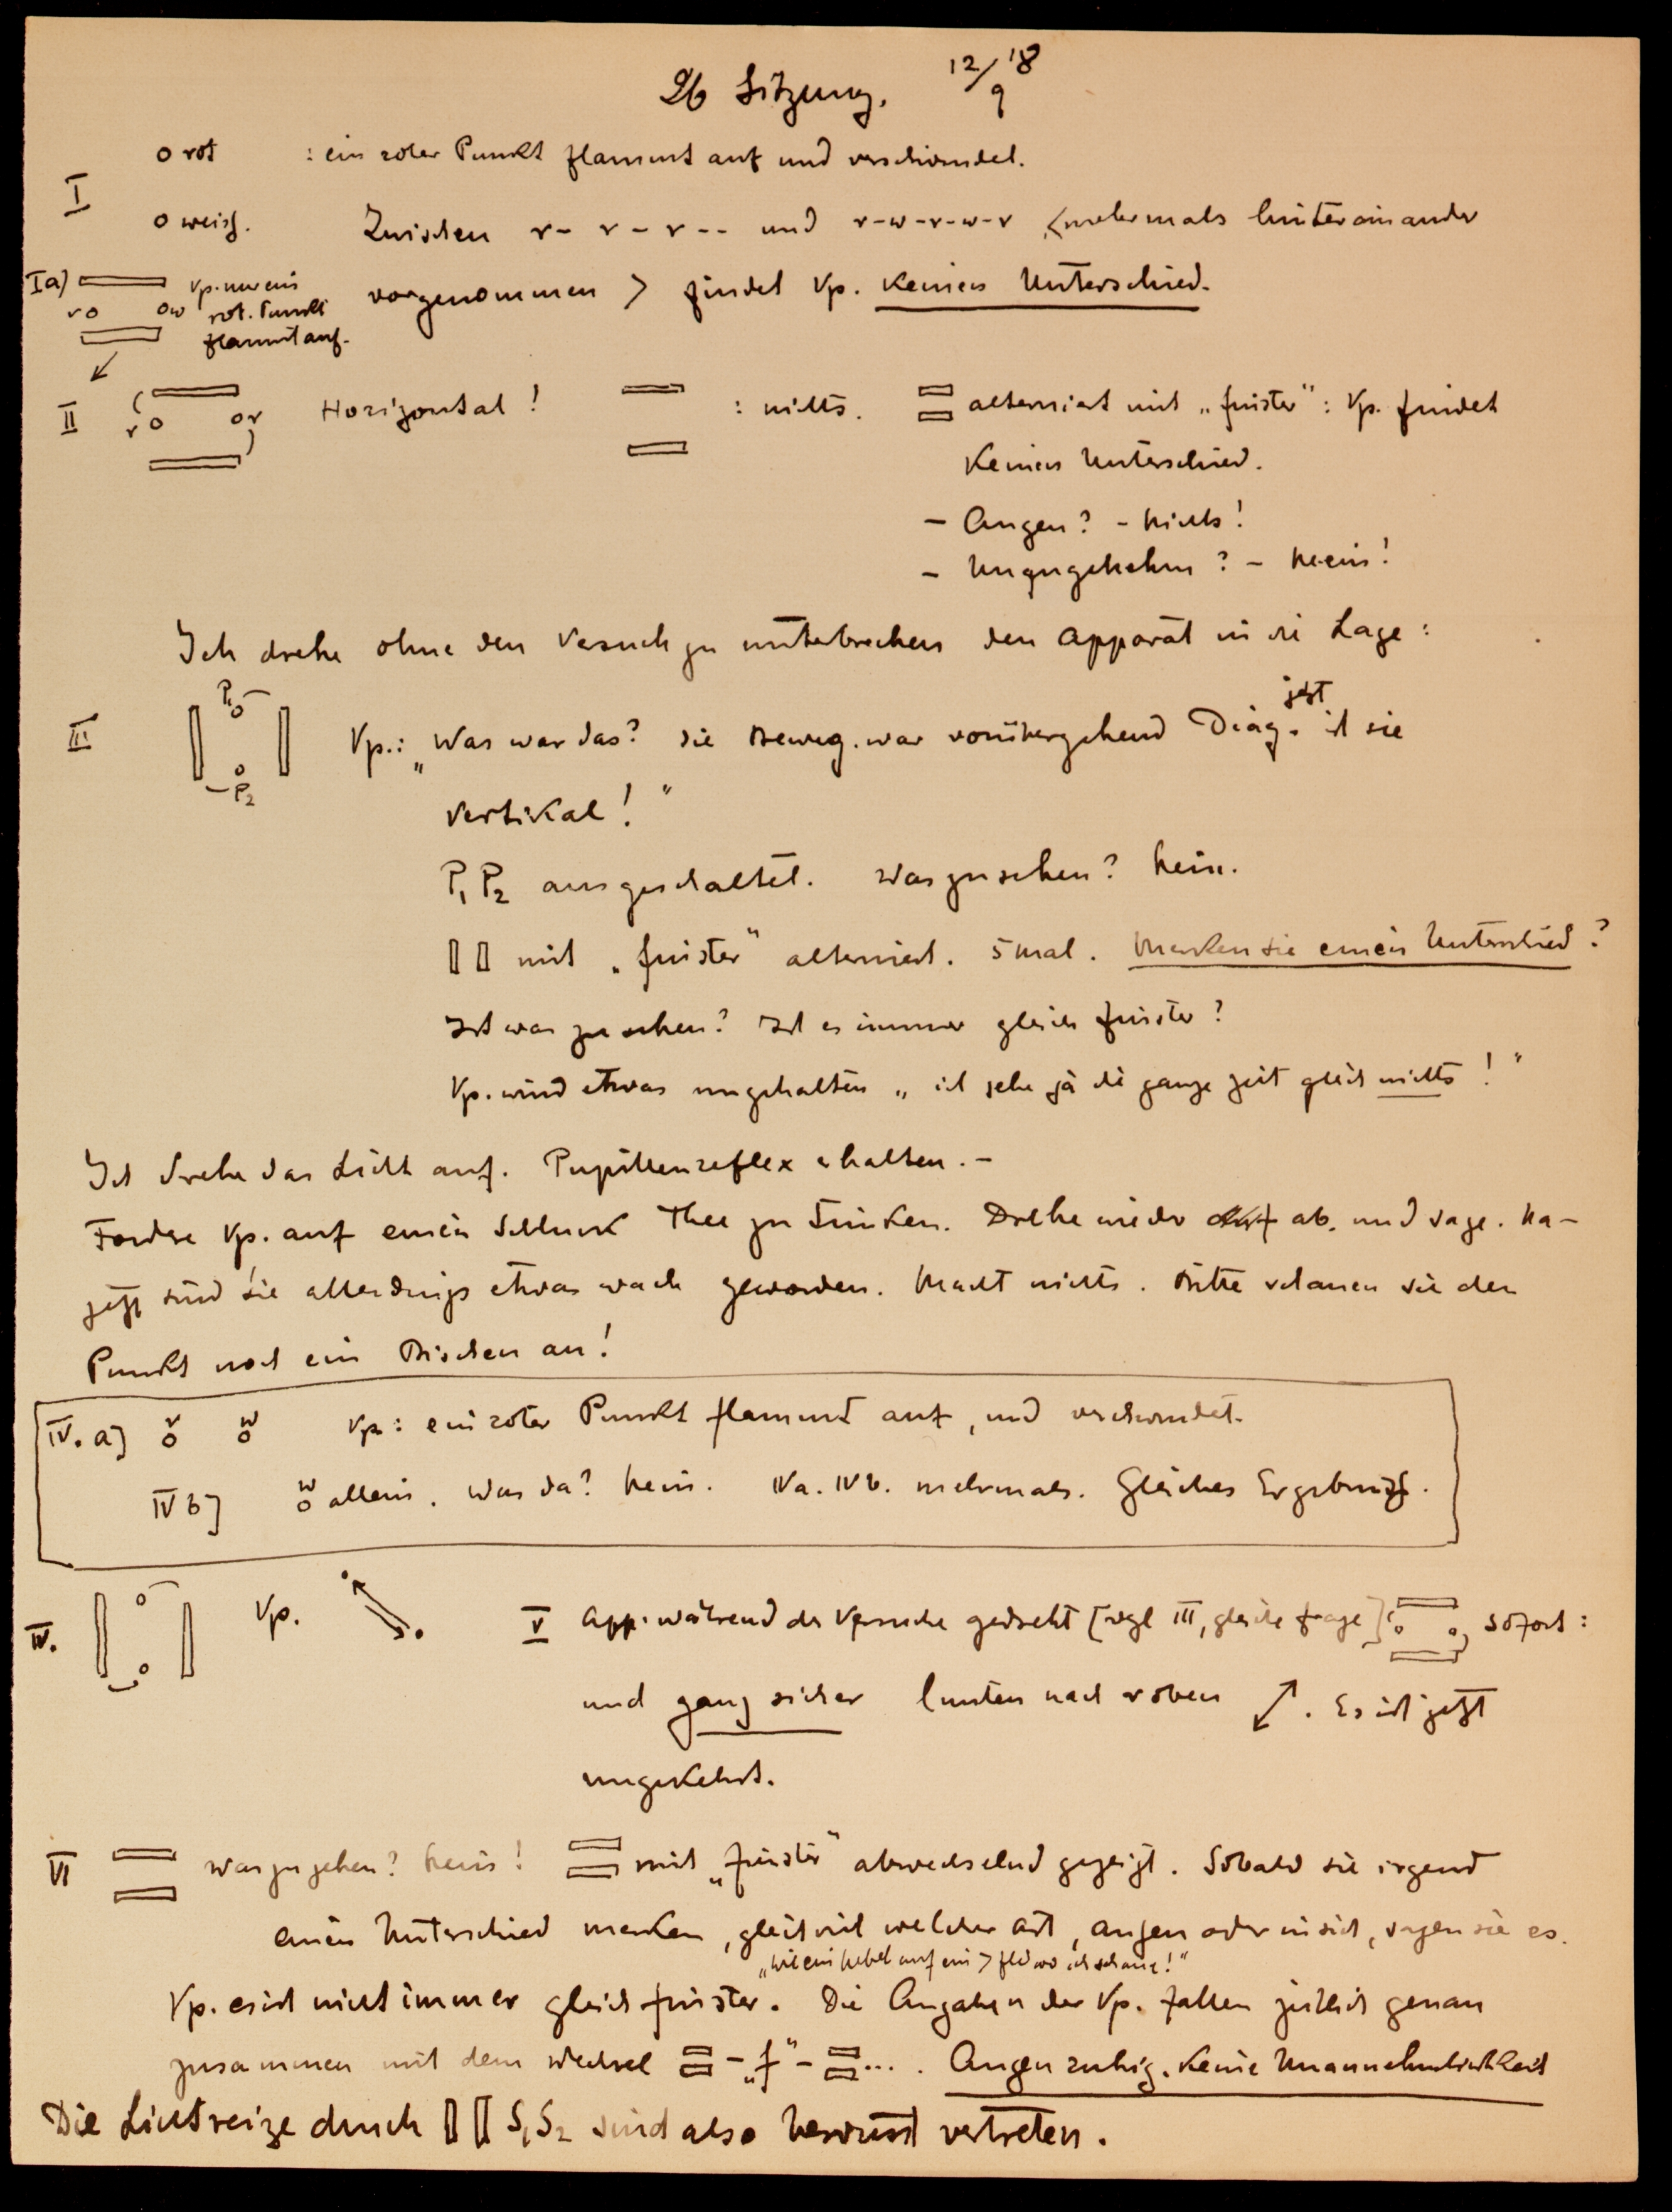 26 Sitzung. 12/9 18
I o rot : ein roter Punkt flammt auf und verschwindet.
o weiß. Zwischen r- r - r -- und r-w-r-w-r <mehrmals hintereinander
Ia) ro ow Vp. nur ein rot. Punkt flammt auf.
vorgenommen > findet Vp. keinen Unterschied.
II ro or Horizontal! : nichts. alterniert mit „finster": Vp. findet
keinen Unterschied.
- Augen? - Nichts!
- Unangenehm? - Nein!
Ich drehe ohne den Versuch zu unterbrechen den Apparat in die Lage:
III P1 o o P2 Vp.: „Was war das? Die Beweg. war vorübergehend Diag. jetzt ist sie
vertikal!"
P1 P2 ausgeschaltet. Was zu sehen? Nein.
mit „finster" alterniert. 5 mal. Merken sie einen Unterschied?
Ist was zu sehen? Ist es immer gleich finster?
Vp. wird etwas ungehalten „ich sehe ja die ganze Zeit gleich nichts!"
Ich drehe das Licht auf. Pupillenreflex erhalten. -
Fordere Vp. auf einen Schluck Thee zu trinken. Drehe wieder ab. und sage. Na-
jetzt sind Sie allerdings etwas wach geworden. Macht nichts. Bitte schauen sie den
Punkt noch ein Bischen an!
IV. a] r o w o Vp: ein roter Punkt flammt auf, und verschwindet.
IV b] w o allein. Was da? Nein. IVa. IVb. mehrmals. Gleiches Ergebniß.
IV. o o Vp.
V App. während der Versuche gedreht [vgl III, gleiche Frage] o o sofort:
und ganz sicher l unten nach r oben . Es ist jetzt
umgekehrt.
VI was zu sehen? Nein! mit „finster" abwechselnd gezeigt. Sobald sie irgend
einen Unterschied merken, gleichviel welcher Art, Augen oder in sich, sagen sie es.
„Wie ein Nebel auf ein wo ich schaue!"
Vp. es ist nicht immer gleich finster. Die Angaben der Vp. fallen zeitlich genau
zusammen mit dem Wechsel - „f" - .... Augen ruhig. Keine Unannehmlichkeit
Die Lichtreize durch S1 S2 sind also bewusst vertreten.